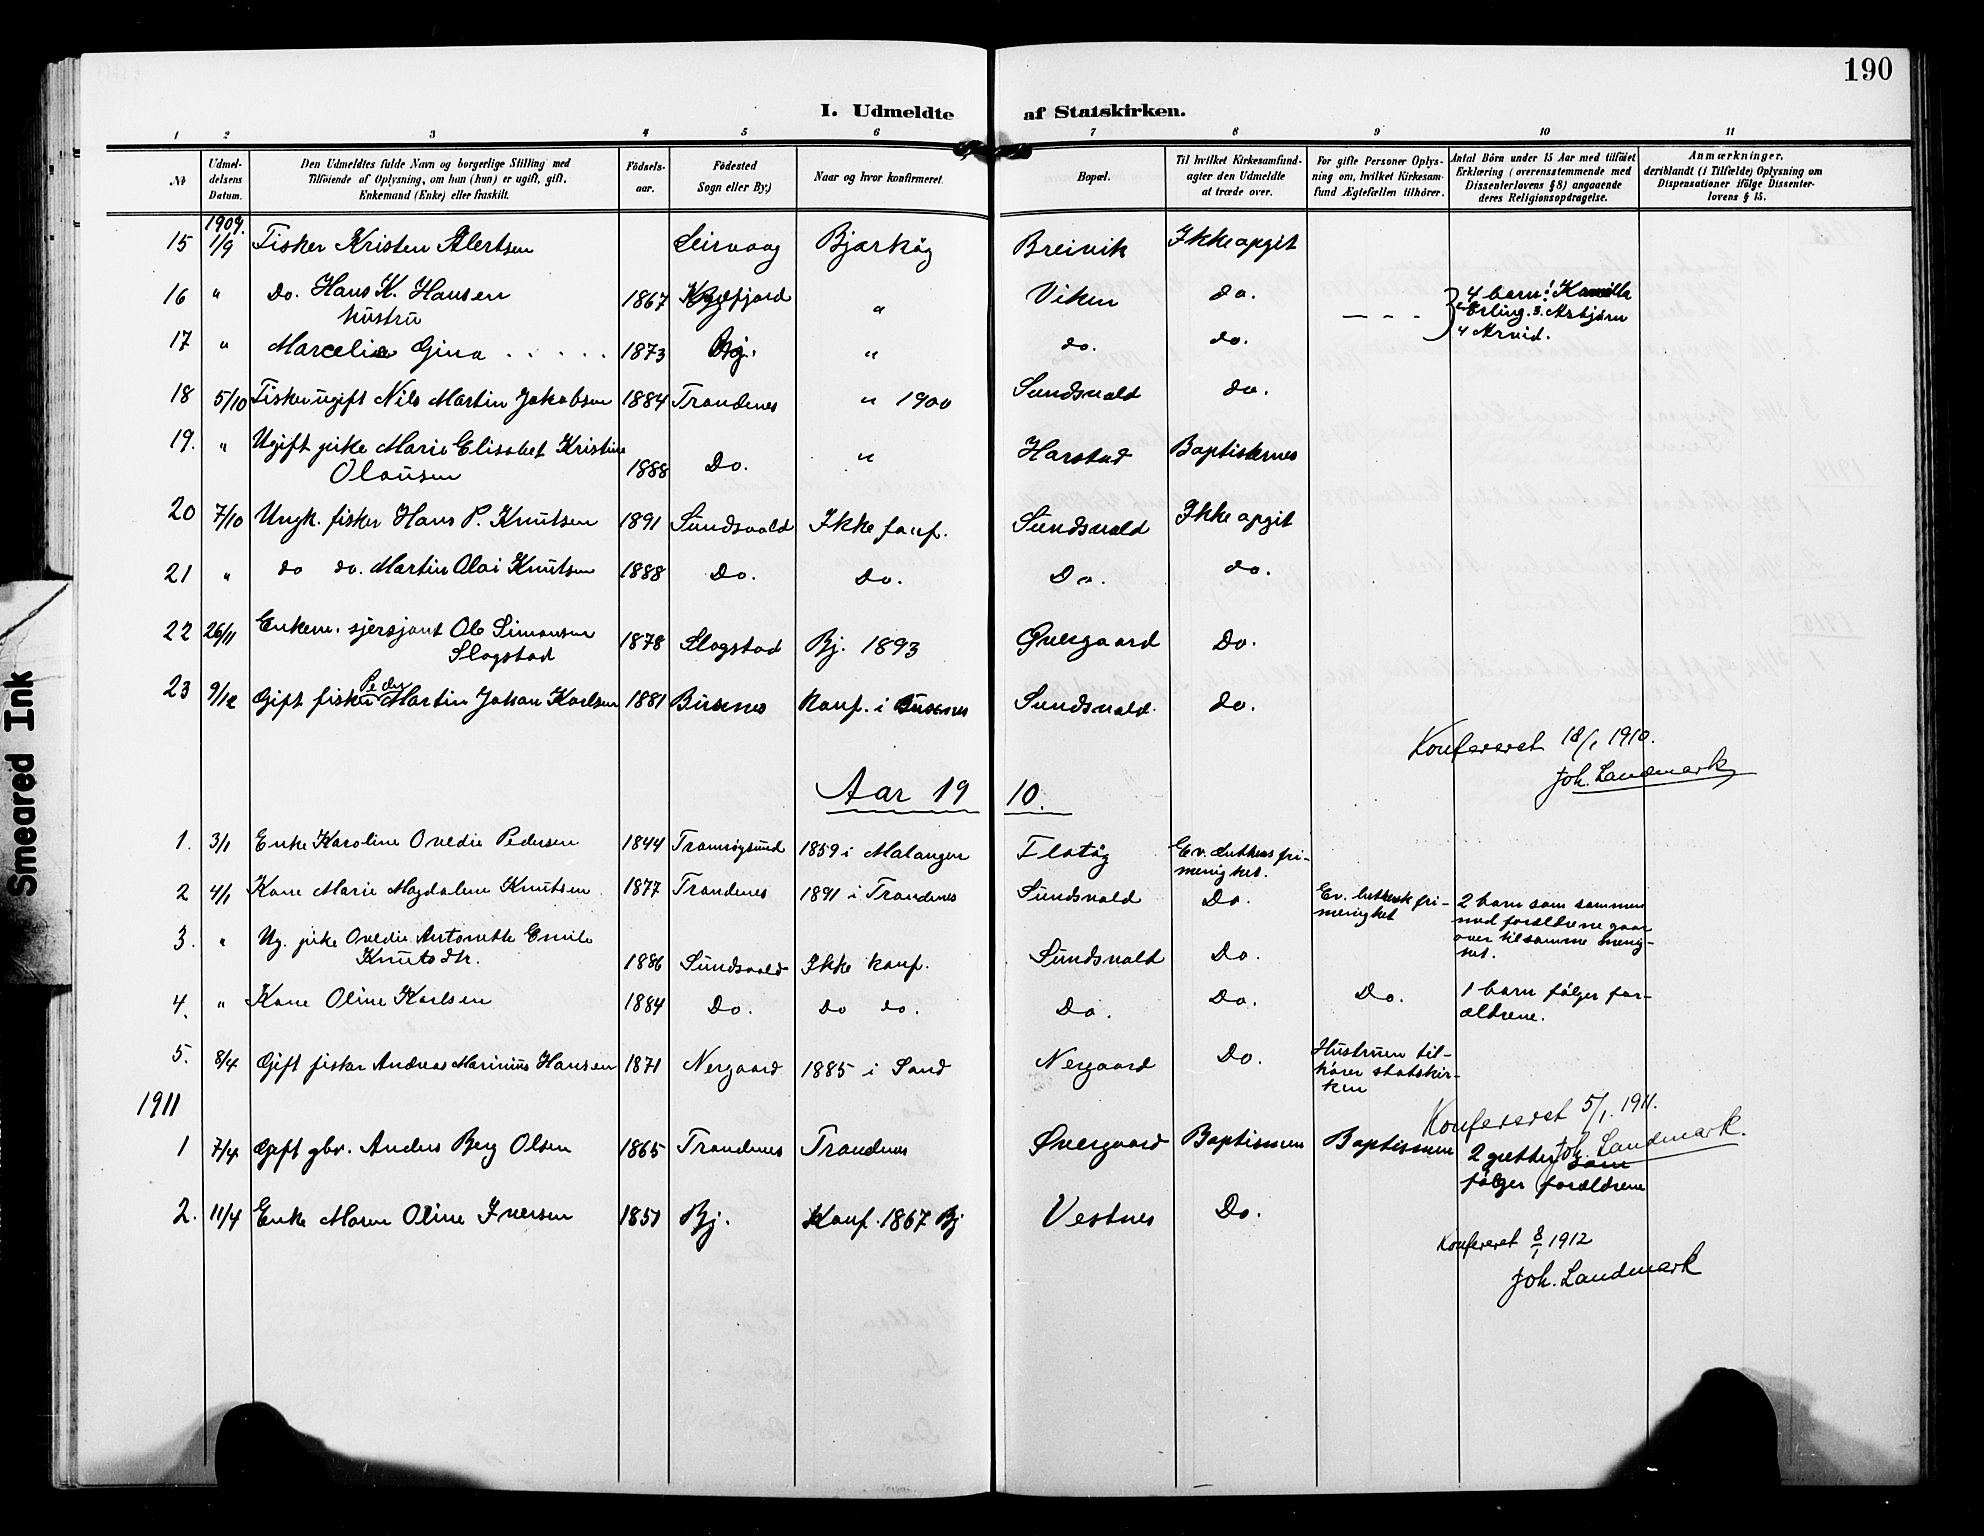 190
I. Udmeldte af Statskirken.
1 2 3 4 5 6 7 8 9 10 11
No
Udmel-
delsens
Datum.
Den Udmeldtes fulde Navn og borgerlige Stilling med
Tilföiende af Oplysning, om han (hun) er ugift, gift,
Enkemand (Enke) eller fraskilt.
Födsels-
aar.
Födested
Sogn eller By.)
Naar og hvor konfirmeret.
Bopæl.
Til hvilket Kirkesamfund-
agter den Udmeldte
at træde over.
For gifte Personer Oplys-
ning om, hvilket Kirkesam-
fund Ægtefællen tilhörer.
Antal Börn under 15 Aar med tilföiet
Erklæring (overensstemmende med
Dissenterlovens § 8) angaaende
deres Religionsopdragelse.
Anmærkninger,
deriblandt (i Tilfælde) Oplysning om
Dispensationer ifölge Dissenter-
lovens § 15.
1909.
15 1/9 Fisker Kristen Alertsen Leirvaag Bjarköy Breivik Ikke opgit
16 " Do. Hans K. Hansen 1867 fjord " Viken do. 4 barn: 1 Kamilla
hustru 2 Erling. 3. Asbjørn
17 " Marcelie Gina . . . . . 1873 Bj. " do. do. 4 Arvid.
18 5/10 Fisker ugift Nils Martin Jakobsen 1884 Trondenes " 1900 Sundsvold do.
19. " Ugift pike Marie Elisabet Kristine
Olausen 1888 Do. " Harstad Baptisternes
20 7/10 Ungk. fisker Hans P. Knutsen 1891 Sundsvold Ikke konf. Sundsvold Ikke opgit
21 " do do. Martin Olai Knutsen 1888 Do. Do. Do. do.
22 26/11 Enkem. sjersjant Ole Simonsen
Slogstad 1878 Slogstad Bj. 1893 Øvergaard Do.
23 9/12 Gift fisker Peder Martin Johan Karlsen 1881 Buxnes konf. i Buxnes Sundsvold. do.
Konfereret 18/1 1910.
Joh. Landmark
Aar 1910.
1. 3/1 Enke Karoline Ovedie Pedersen 1844 Tromsøysund 1859 i Malangen Flatøy Ev. luthers fri-
menighet.
2 4/1 Kone Marie Magdalene Knutsen 1877 Trondenes 1891 i Trondenes Sundsvold Do. Ev. luthersk fri-
menighet
2 barn som sammen
med forældrene gaar
over til samme menig-
het.
3. " Ug. pike Ovedie Antonette Emile
Knutsdtr. 1886 Sundsvold Ikke konf. Sundsvold Do.
4. " Kone Oline Karlsen 1884 Do. Do do. Do. Do. Do. 1 barn følger for-
ældrene.
5. 8/4 Gift fisker Andreas Marinius Hansen 1871 Nergaard 1885 i Sand Nergaard Do. Hustruen til-
hører statskir-
ken
1911
Konfereret 5/1. 1911.
Joh. Landmark.
1 7/4 Gift gbr. Anders Berg Olsen 1865 Trondenes Trondenes Øvergaard Baptismen Baptismen 2 gutter som
følger forældrene
2. 11/4 Enke Maren Oline Iversen 1851 Bj. Konf. 1867 Bj Vestnes Do.
Konfereret 8/1 1912
Joh. Landmark
Smeared Ink